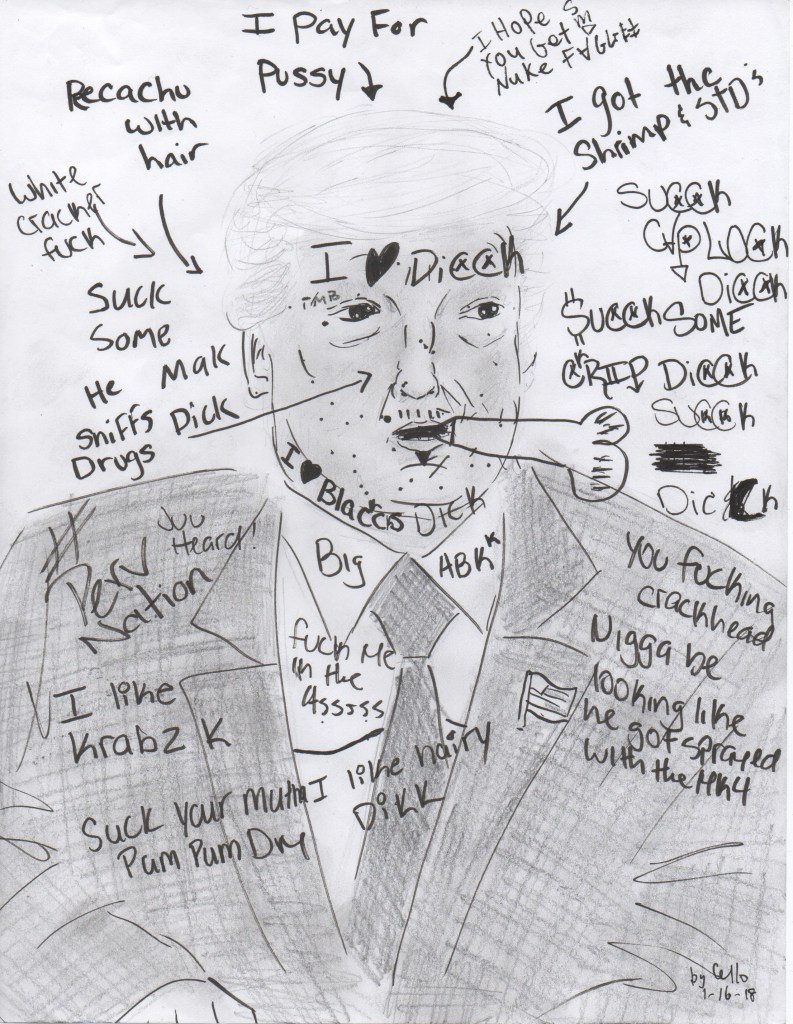 I Pay For
Pussy
I Hope
You Get
Nuke
Pecachu
with
hair
I got the
Shrimp & STD's
White
cracker
fuck
Succk
Dicck
I ♥ Dicck
TMB
$ucckSOME
CRIP Dicck
Succk
Dick
Suck
Some
Mak
Dick
He
sniffs
Drugs
I ♥ Blaccs Dick
Big
ABKK
#
Perv
Nation
Juu
Heard!
You fucking
crackhead
Fuck Me
in the
Assssss
Nigga be
looking like
he got sprayed
with the MK4
I like
Krabz K
Suck your
Pum Pum Dry
I like hairy
Dikk
by Cello
1-16-18